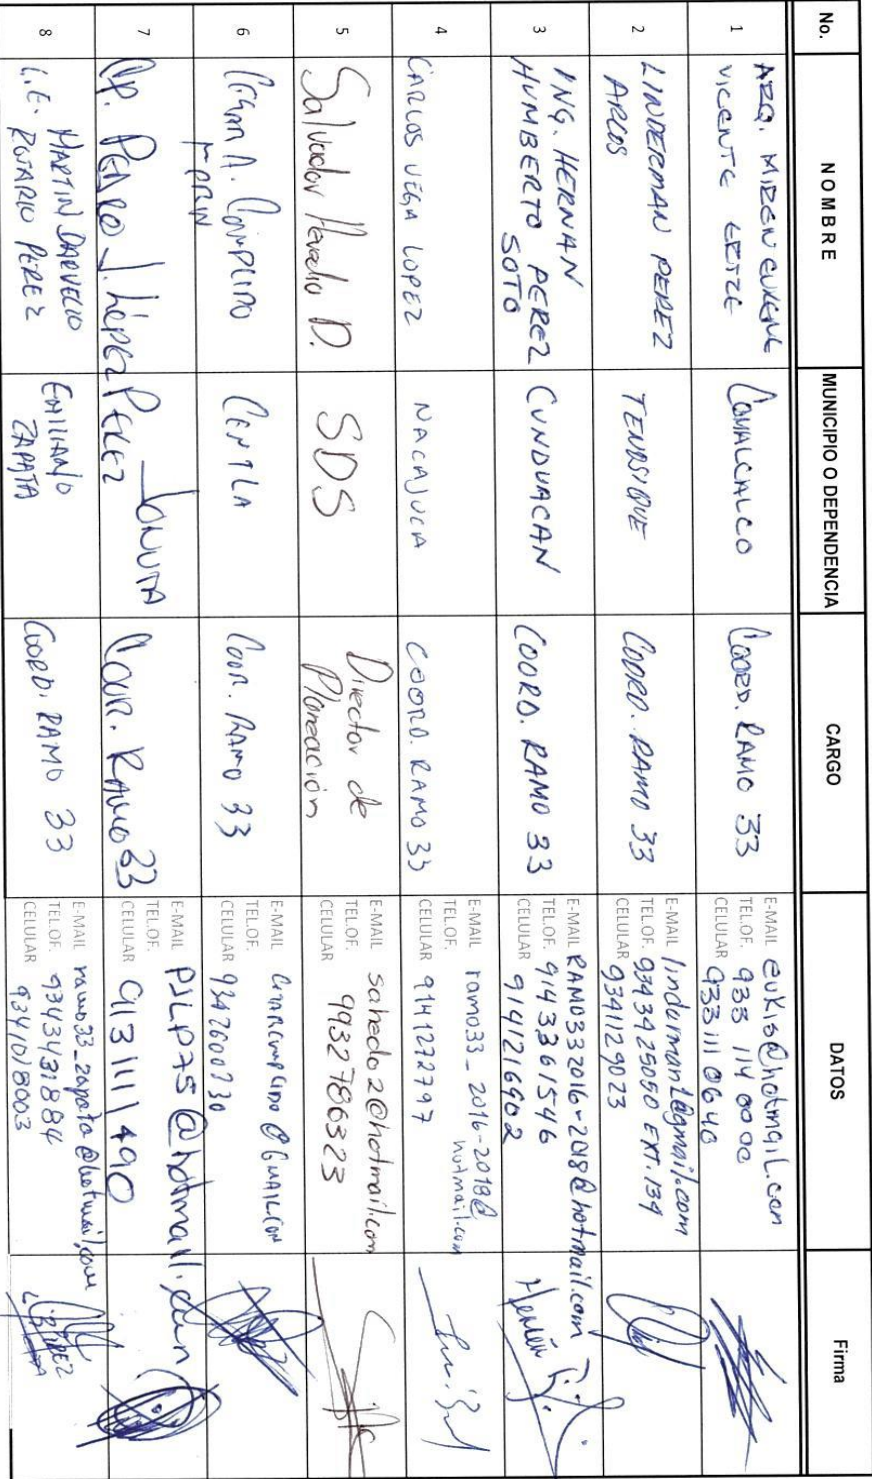 No. NOMBRE MUNICIPIO O DEPENDENCIA CARGO DATOS Firma
1
VICENTE
COMALCALCO
COORD. RAMO 33
E-MAIL eukis@hotmail.com
TEL.OF. 933 114 0000
CELULAR 933 111 0640
2
LINDERMAN PEREZ
ARCOS
TENOSIQUE
COORD. RAMO 33
E-MAIL lindurman1@gmail.com
TEL.OF. 934 34 25050 EXT. 134
CELULAR 9341129023
3
ING. HERNAN
HUMBERTO PEREZ
SOTO
CUNDUACAN
COORD. RAMO 33
E-MAIL RAMO332016-2018@hotmail.com
TEL.OF. 914 33 61546
CELULAR 9141216902
4
CARLOS VEGA LOPEZ
NACAJUCA
COORD. RAMO 33
E-MAIL ramo33_2016-2018@
hotmail.com
TEL.OF.
CELULAR 9141272797
5
Salvador Heredia D.
SDS
Director de
Planeación
E-MAIL sahedo2@hotmail.com
TEL.OF. 9932786323
CELULAR
6
CENTLA
COOR. RAMO 33
E-MAIL @GMAIL.COM
TEL.OF.
CELULAR 9342600730
7
CP. PEDRO J. LÓPEZ PEREZ
JONUTA
COOR. RAMO 33
E-MAIL PJLP75@hotmail.com
TEL.OF.
CELULAR 913 1111490
8
MARTIN
L.E. ROSARIO PEREZ
EMILIANO
ZAPATA
COORD. RAMO 33
E-MAIL ramo33_zapata@hotmail.com
TEL.OF. 9343431884
CELULAR 9341018003